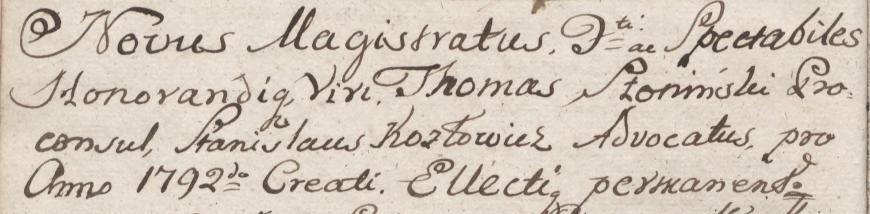 Novus Magistratus. Dti: ac Spectabiles
Honorandiq Viri. Thomas Słoniński Pro:
consul, Stanislaus Kozłowicz Advocatus, pro
Anno 1792do Creati. Ellectiq